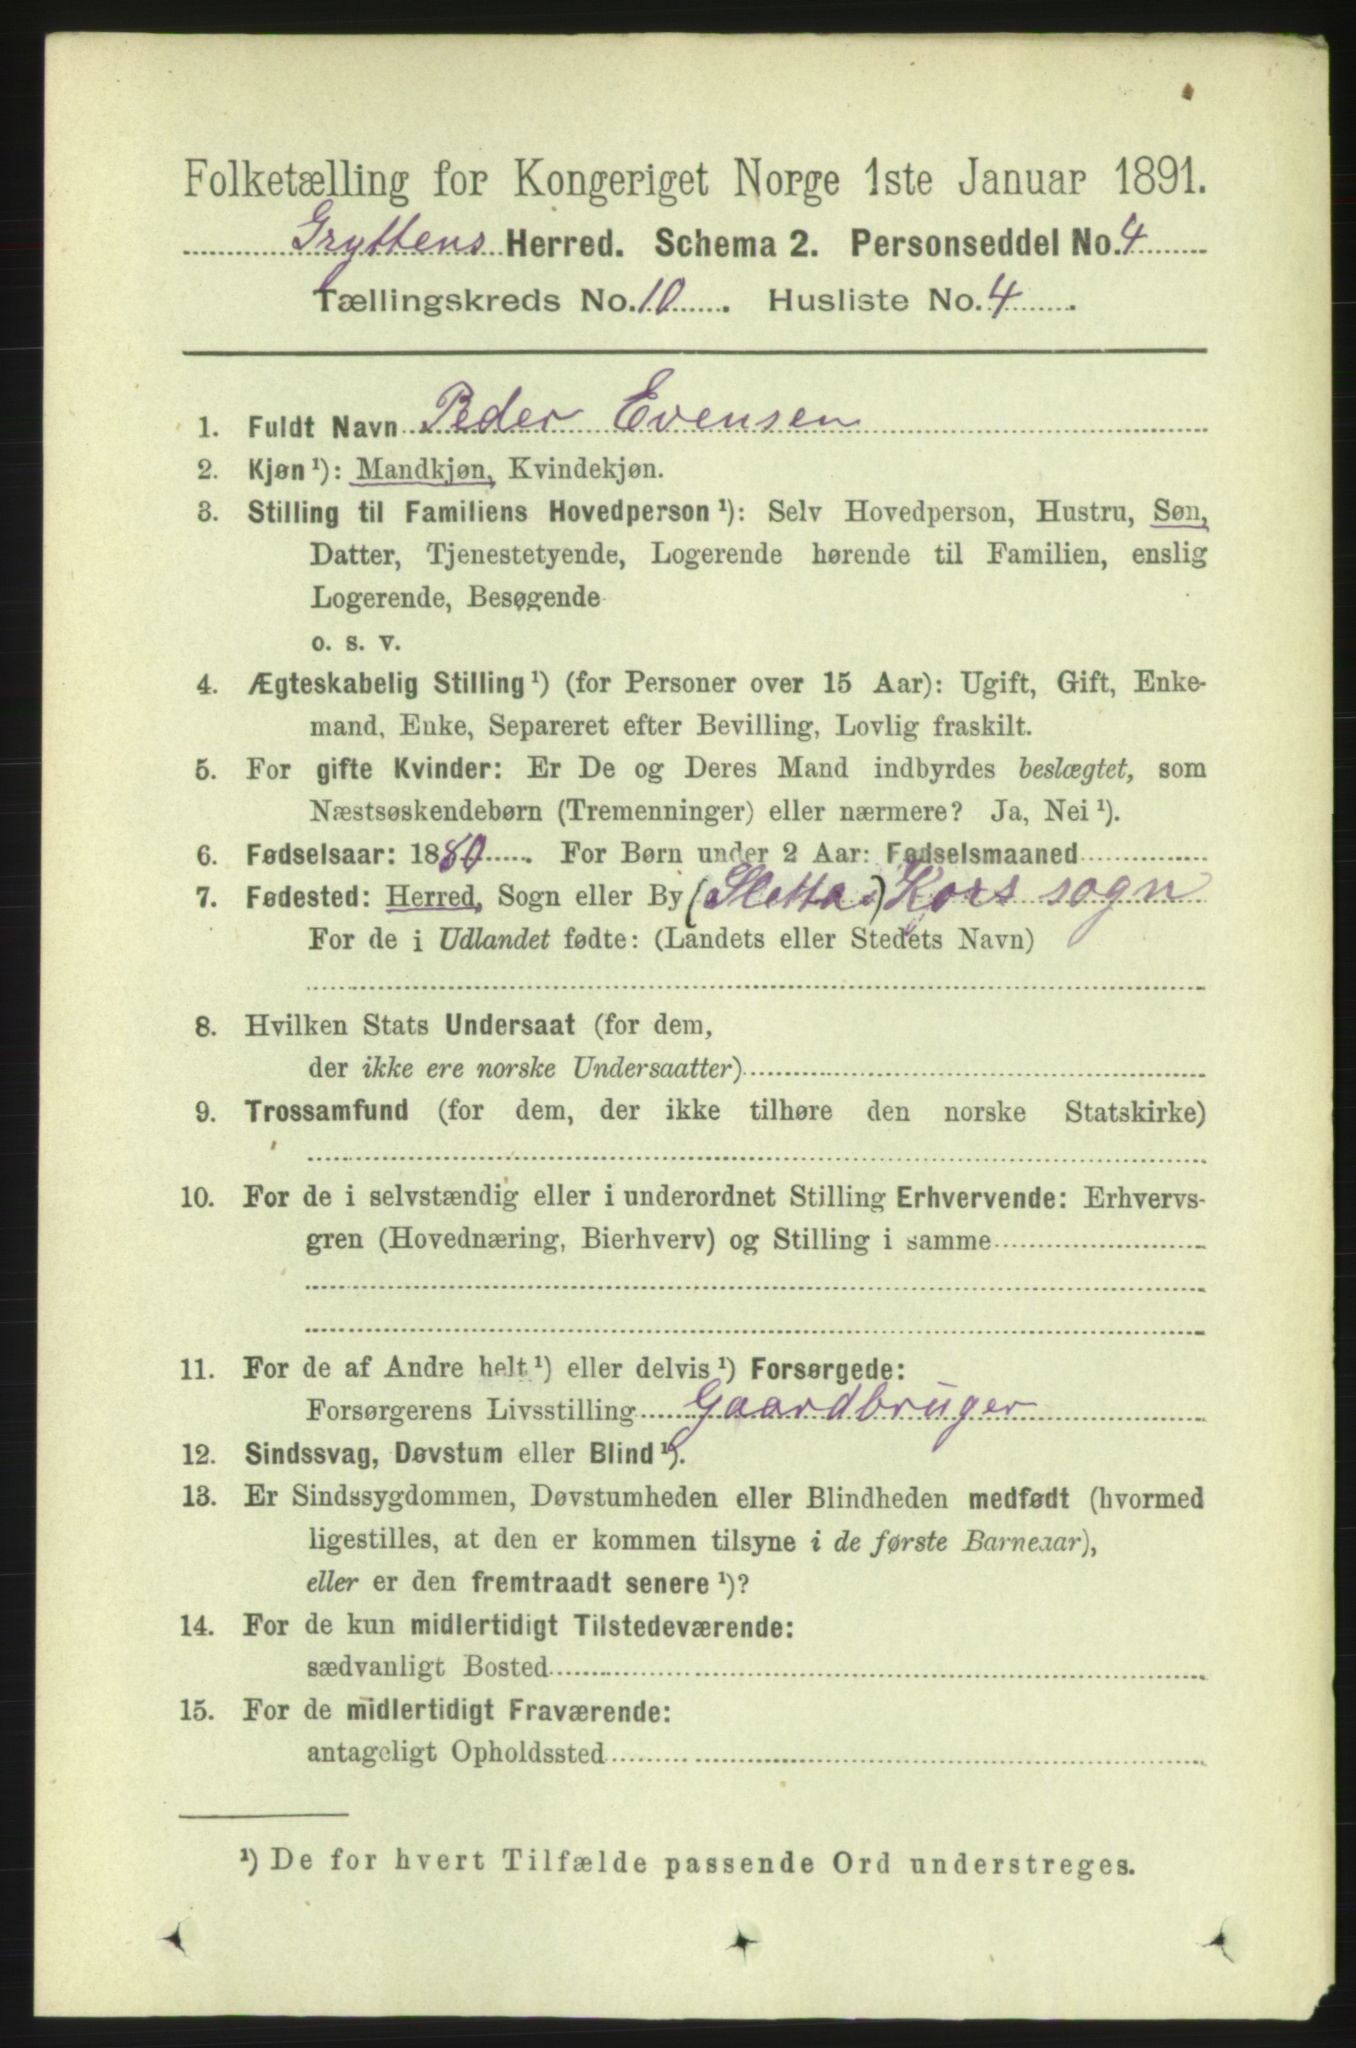 Folketælling for Kongeriget Norge 1ste Januar 1891.
Gryttens Herred. Schema 2. Personseddel No. 4
Tællingskreds No. 10. Husliste No. 4.
1. Fuldt Navn Peder Evensen
2. Kjøn ¹): Mandkjøn, Kvindekjøn.
3. Stilling til Familiens Hovedperson ¹): Selv Hovedperson, Hustru, Søn,
Datter, Tjenestetyende, Logerende hørende til Familien, enslig
Logerende, Besøgende
o. s. v.
4. Ægteskabelig Stilling ¹) (for Personer over 15 Aar): Ugift, Gift, Enke-
mand, Enke, Separeret efter Bevilling, Lovlig fraskilt.
5. For gifte Kvinder: Er De og Deres Mand indbyrdes beslægtet, som
Næstsøskendebørn (Tremenninger) eller nærmere? Ja, Nei ¹).
6. Fødselsaar: 1880. For Børn under 2 Aar: Fødselsmaaned
7. Fødested: Herred, Sogn eller By (Sletta) Kors sogn
For de i Udlandet fødte: (Landets eller Stedets Navn)
8. Hvilken Stats Undersaat (for dem,
der ikke ere norske Undersaatter)
9. Trossamfund (for dem, der ikke tilhøre den norske Statskirke)
10. For de i selvstændig eller i underordnet Stilling Erhvervende: Erhvervs-
gren (Hovednæring, Bierhverv) og Stilling i samme
11. For de af Andre helt ¹) eller delvis ¹) Forsørgede:
Forsørgerens Livsstilling Gaardbruger
12. Sindssvag, Døvstum eller Blind ¹).
13. Er Sindssygdommen, Døvstumheden eller Blindheden medfødt (hvormed
ligestilles, at den er kommen tilsyne i de første Barneaar),
eller er den fremtraadt senere ¹)?
14. For de kun midlertidigt Tilstedeværende:
sædvanligt Bosted
15. For de midlertidigt Fraværende:
antageligt Opholdssted
¹) De for hvert Tilfælde passende Ord understreges.